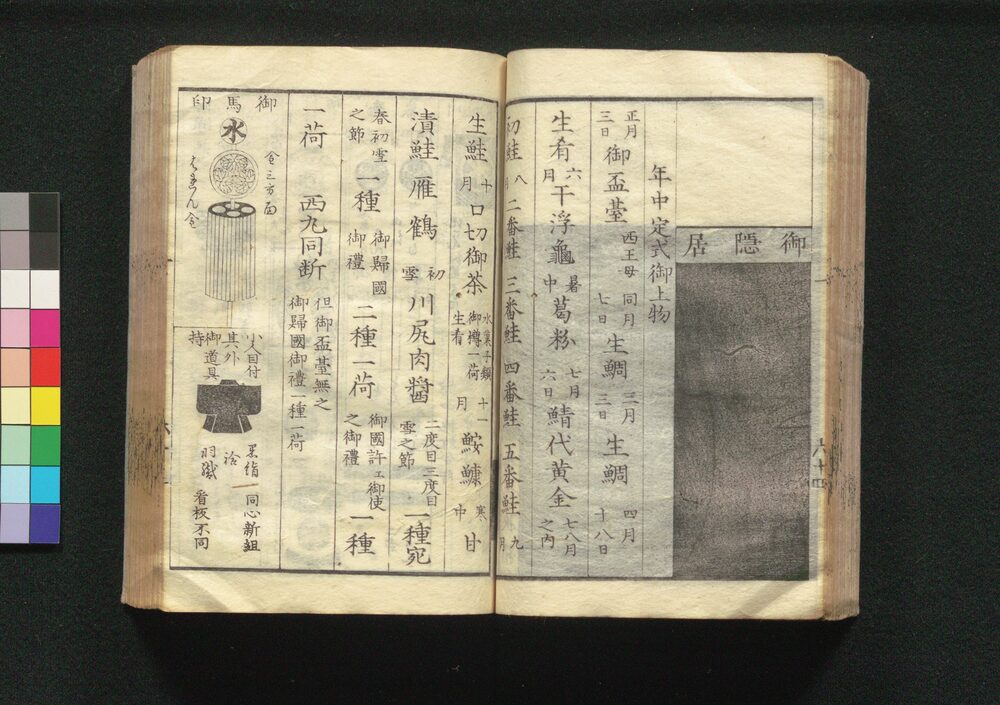 御隠居
年中定式御上物
正月三日 御盃䑓 西王母 同月七日 生鯛 三月三日 生鯛 四月十八日
生肴 六月 干浮龜 暑中 葛粉 七月六日 鯖代黄金 七八月之内
初鮭 八月 二番鮭 三番鮭 四番鮭 五番鮭 九月
生鮭 十月 口切御茶 水菓子類 御樽一荷 生肴 十一月 鮟鱇 寒中 甘
漬鮭 雁 鶴 初雪 川尻肉醤 二度目三度目雪之節 一種宛
春初雪之節 一種 御歸國御禮 二種一荷 御國許ヱ御使之御禮 一種
一荷 西丸同断 但御盃䑓無之 御歸國御禮一種一荷
御馬印
水
金三方面
はまつん金
小人目付
其外
御道具
持
黒絹一同心新組
洽
羽織
看板不同
六十四